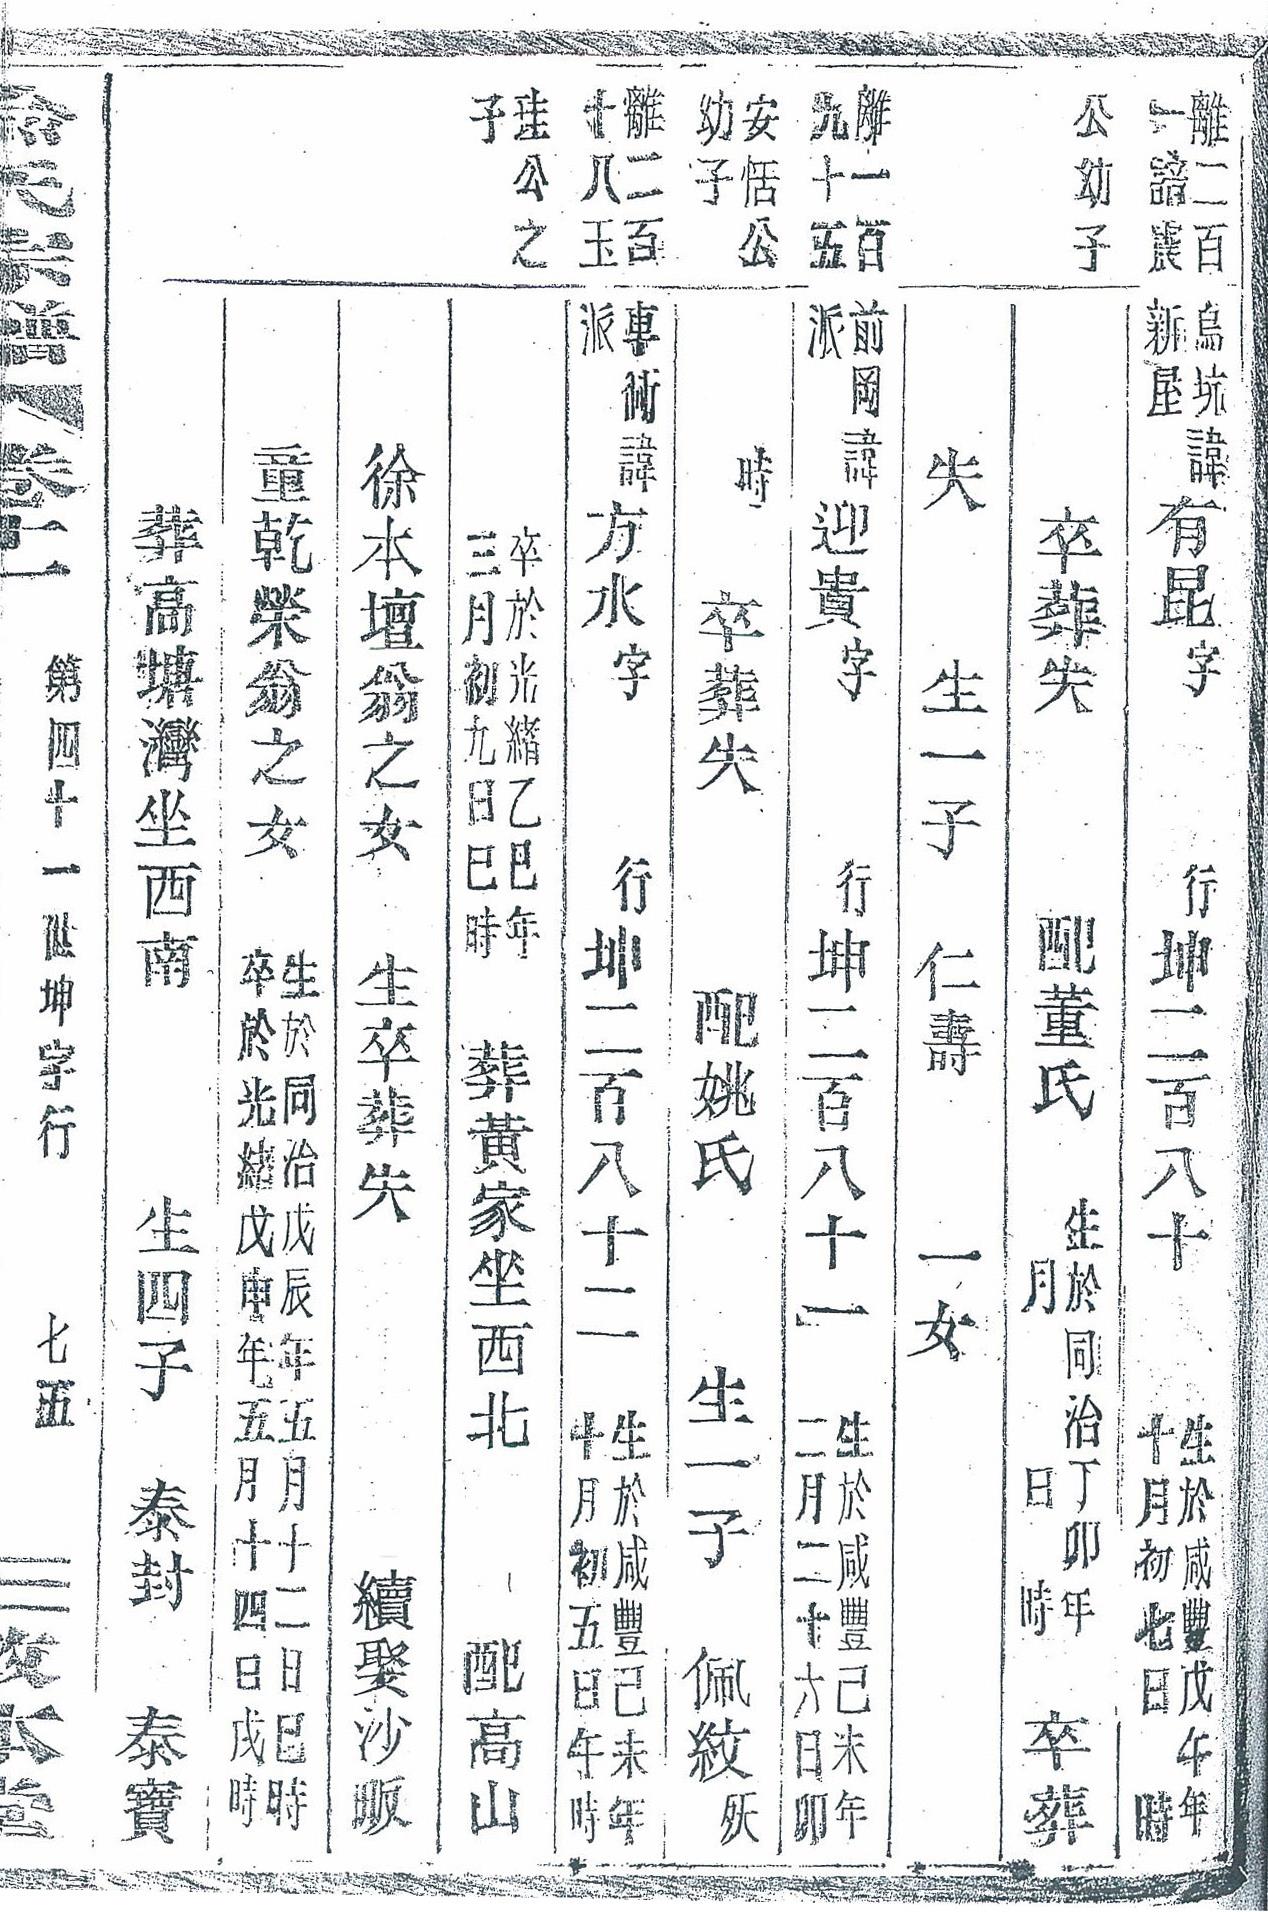 離二百
一諳震
公幼子
離一百
九十五
安恬公
幼子
離二百
十八玉
珪公之
子
烏坑諱
新屋
有昆字 行坤二百八十
生於咸豐戊午年
十月初七日 時
卒葬失 配董氏
生於同治丁卯年
月 日 時
卒葬
失 生一子 仁壽 一女
前岡諱
派
迎貴字 行坤二百八十一
生於咸豐己未年
二月二十六日卯
時 卒葬失 配姚氏 生一子 佩紋 殀
車衕諱
派
方水字 行坤二百八十二
生於咸豐己未年
十月初五日午時
卒於光緒乙巳年
三月初九日巳時
葬黃家坐西北 配高山
徐本壇翁之女 生卒葬失 續娶沙畈
童乾榮翁之女
生於同治戊辰年五月十二日巳時
卒於光緒戊申年五月十四日戌時
葬高塘灣坐西南 生四子 泰封 泰寶
宗譜 卷二 第四十一世坤字行 七五 本堂